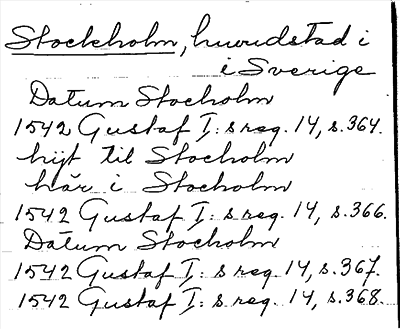 Stockholm, huvudstad i
i Sverige
Datum Stocholm
1542 Gustaf I: s reg. 14, s. 364.
hijt til Stocholm
här i Stocholm
1542 Gustaf I: s reg. 14, s. 366.
Datum Stocholm
1542 Gustaf I: s reg. 14, s. 367.
1542 Gustaf I: s reg. 14, s. 368.